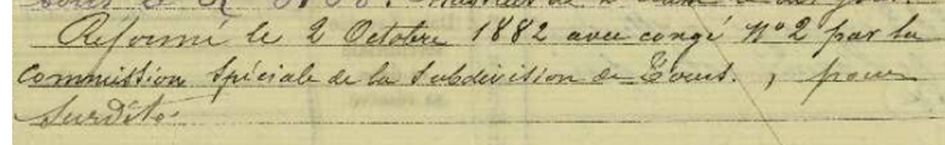 Réformé le 2 Octobre 1882 avec congé Nº 2 par la
Commission Spéciale de la Subdivision de Tours. , pour
Surdité.